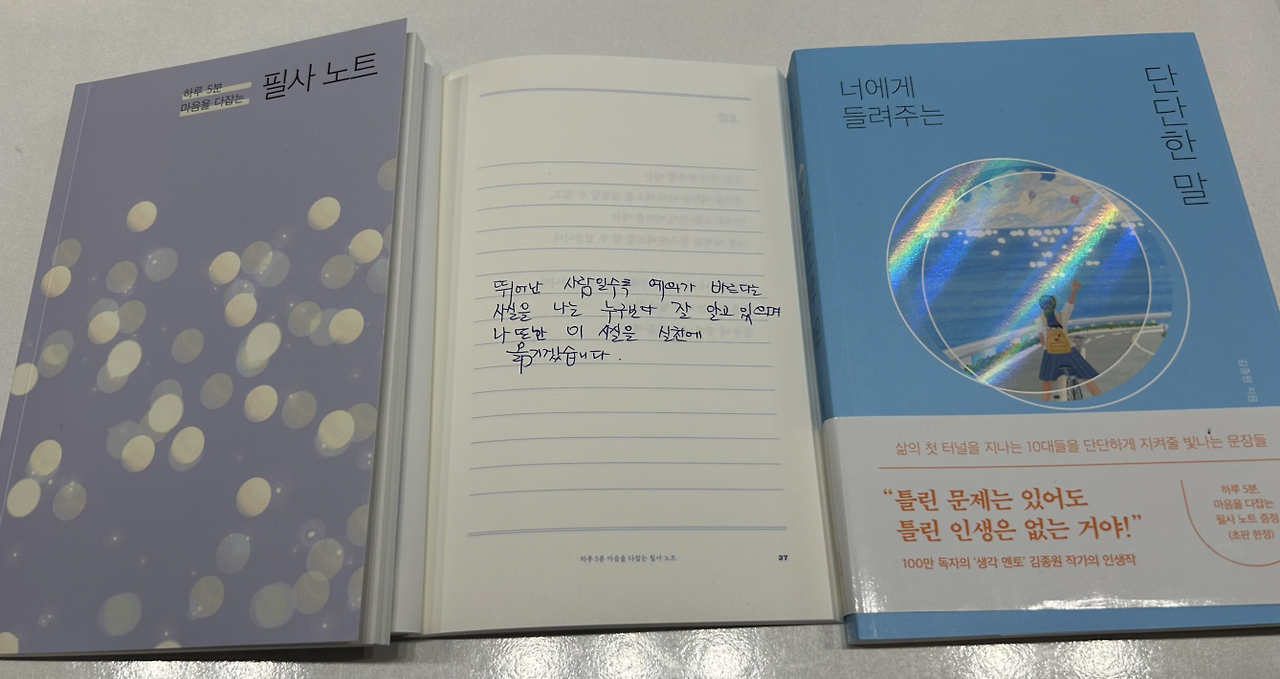 하루 5분
마음을 다잡는
필사 노트
뛰어난 사람일수록 예의가 바르다는
사실을 나는 누구보다 잘 알고 있으며
나 또한 이 사실을 실천에
옮기겠습니다.
하루 5분 마음을 다잡는 필사 노트
37
너에게
들려주는
단단한 말
김종원 지음
삶의 첫 터널을 지나는 10대들을 단단하게 지켜줄 빛나는 문장들
“틀린 문제는 있어도
틀린 인생은 없는 거야!”
100만 독자의 ‘생각 멘토’ 김종원 작가의 인생작
하루 5분,
마음을 다잡는
필사 노트 증정
(초판 한정)